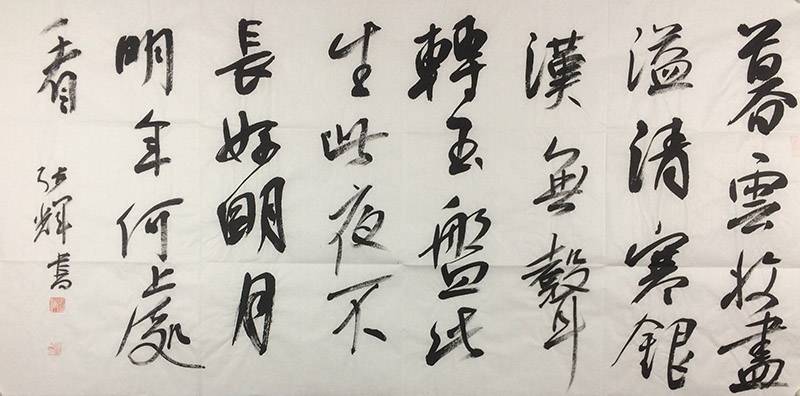 暮雲收盡
溢清寒銀
漢無聲
轉玉盤此
生此夜不
長好明月
明年何處
看
輝書